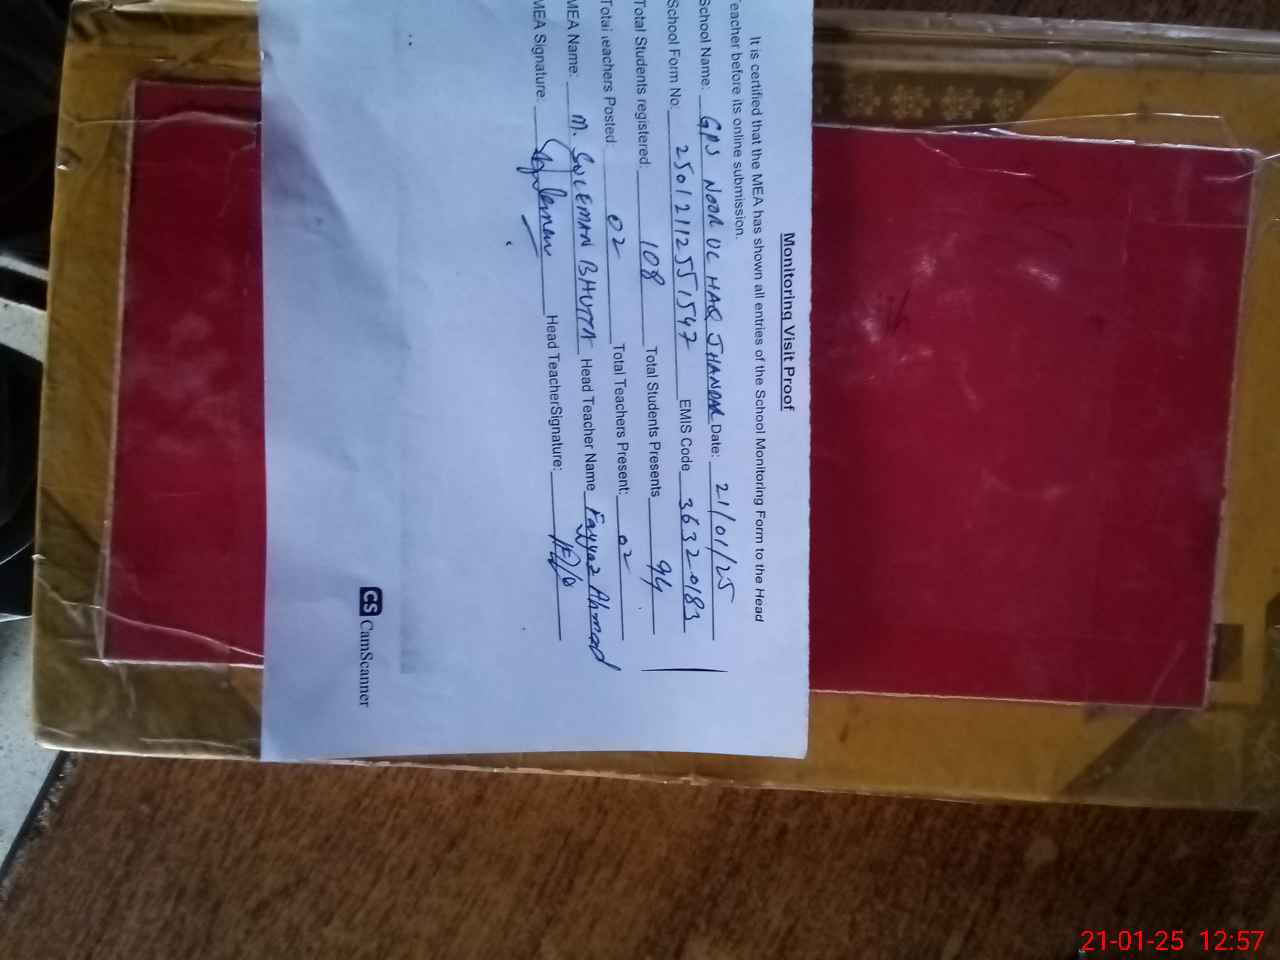 Monitoring Visit Proof
It is certified that the MEA has shown all entries of the School Monitoring Form to the Head
eacher before its online submission.
School Name: GPS NOOR UL HAQ JHANDAR Date: 21/01/25
School Form No: 250121125551547 EMIS Code 36320183
Total Students registered: 108 Total Students Presents 94
Total Teachers Posted: 02 Total Teachers Present: 02
MEA Name: M. SULEMAN BHUTTA Head Teacher Name Fayyaz Ahmad
MEA Signature: Head TeacherSignature:
CS CamScanner
21-01-25 12:57